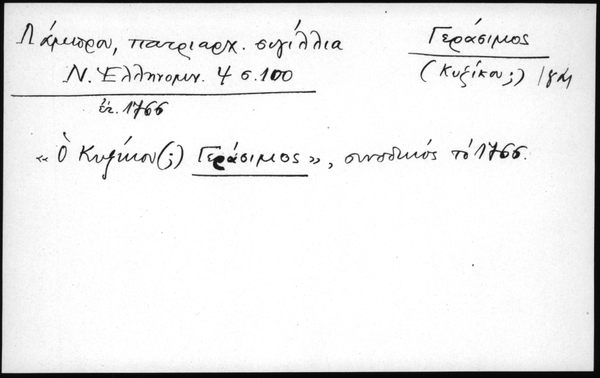 Λάμπρου, πατριαρχ. σιγίλλια
Ν. Ἑλληνομν. 4 σ. 100
ἔτ. 1766
Γεράσιμος
(Κυζίκου;)
« Ὁ Κυζίκου(;) Γεράσιμος », συνοδικός τό 1766.